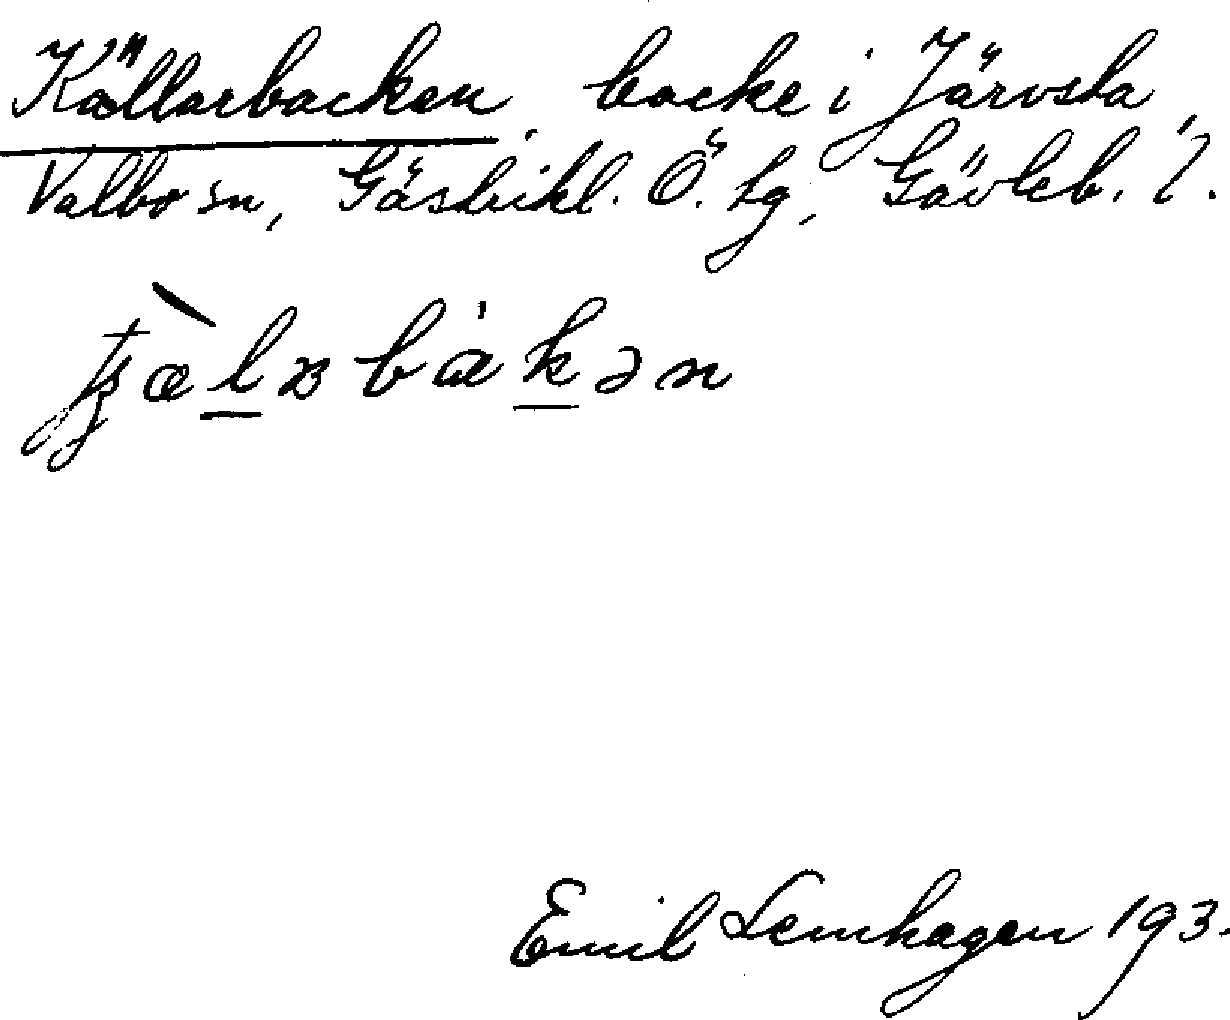 Källarbacken, backe i Järvsta,
Valbo sn, Gästrikl. Ö. tg, Gävleb. l.
Emil Lenhagen 193